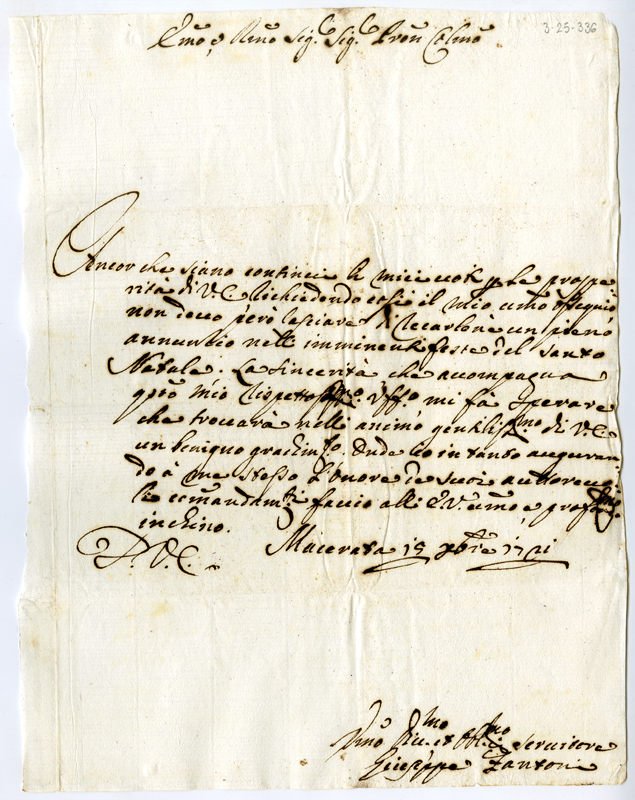 3-25-336
Emo e Rmo Sig.r Sig.r Pron Colmo
Ancor che siano continui li miei voti p le prospe
rità di V. E. richiedendo così il mio umo ossequio
non devo però lasciare di recarlone un pieno
annuncio nelle imminenti feste del Santo
Natale. La sincerità che acompagna
qto mio rispettoss.o Uff.o mi fà sperare
che troverà nell animo gentiliss.mo di V. E.
un benigno gradim.to. Onde io in tanto auguran
do à me stesso l'onore de suoi autorevo
li comandam.ti faccio all E. V. umo, e profond.mo
inchino.
D. V. E. Macerata 15 Xbre 1721
Vmo Div. et Obl.mo Servitore
Giuseppe Zantoni